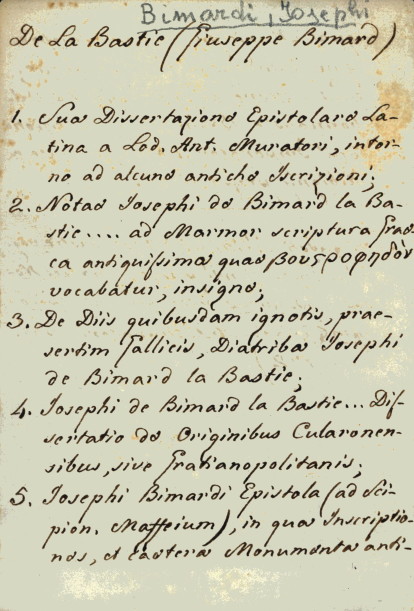 Bimardi, Josephi
De La Bastie (Giuseppe Bimard)
1. Sua Dissertazione Epistolare La-
tina a Lod. Ant. Muratori, intor-
no ad alcune antiche Iscrizioni;
2. Notae Josephi de Bimard la Ba-
stie.... ad Marmor scriptura Grae-
ca antiquissima quae βουςροφηδὸν
vocabatur, insigne;
3. De Diis quibusdam ignotis, prae-
sertim Gallicis, Diatriba Josephi
de Bimard la Bastie;
4. Josephi de Bimard la Bastie... Dis-
sertatio de Originibus Cularonen-
sibus, sive Gratianopolitanis;
5. Josephi Bimardi Epistola (ad Sci-
pion. Maffeium), in qua Inscriptio-
nes, et caetera Monumenta anti-